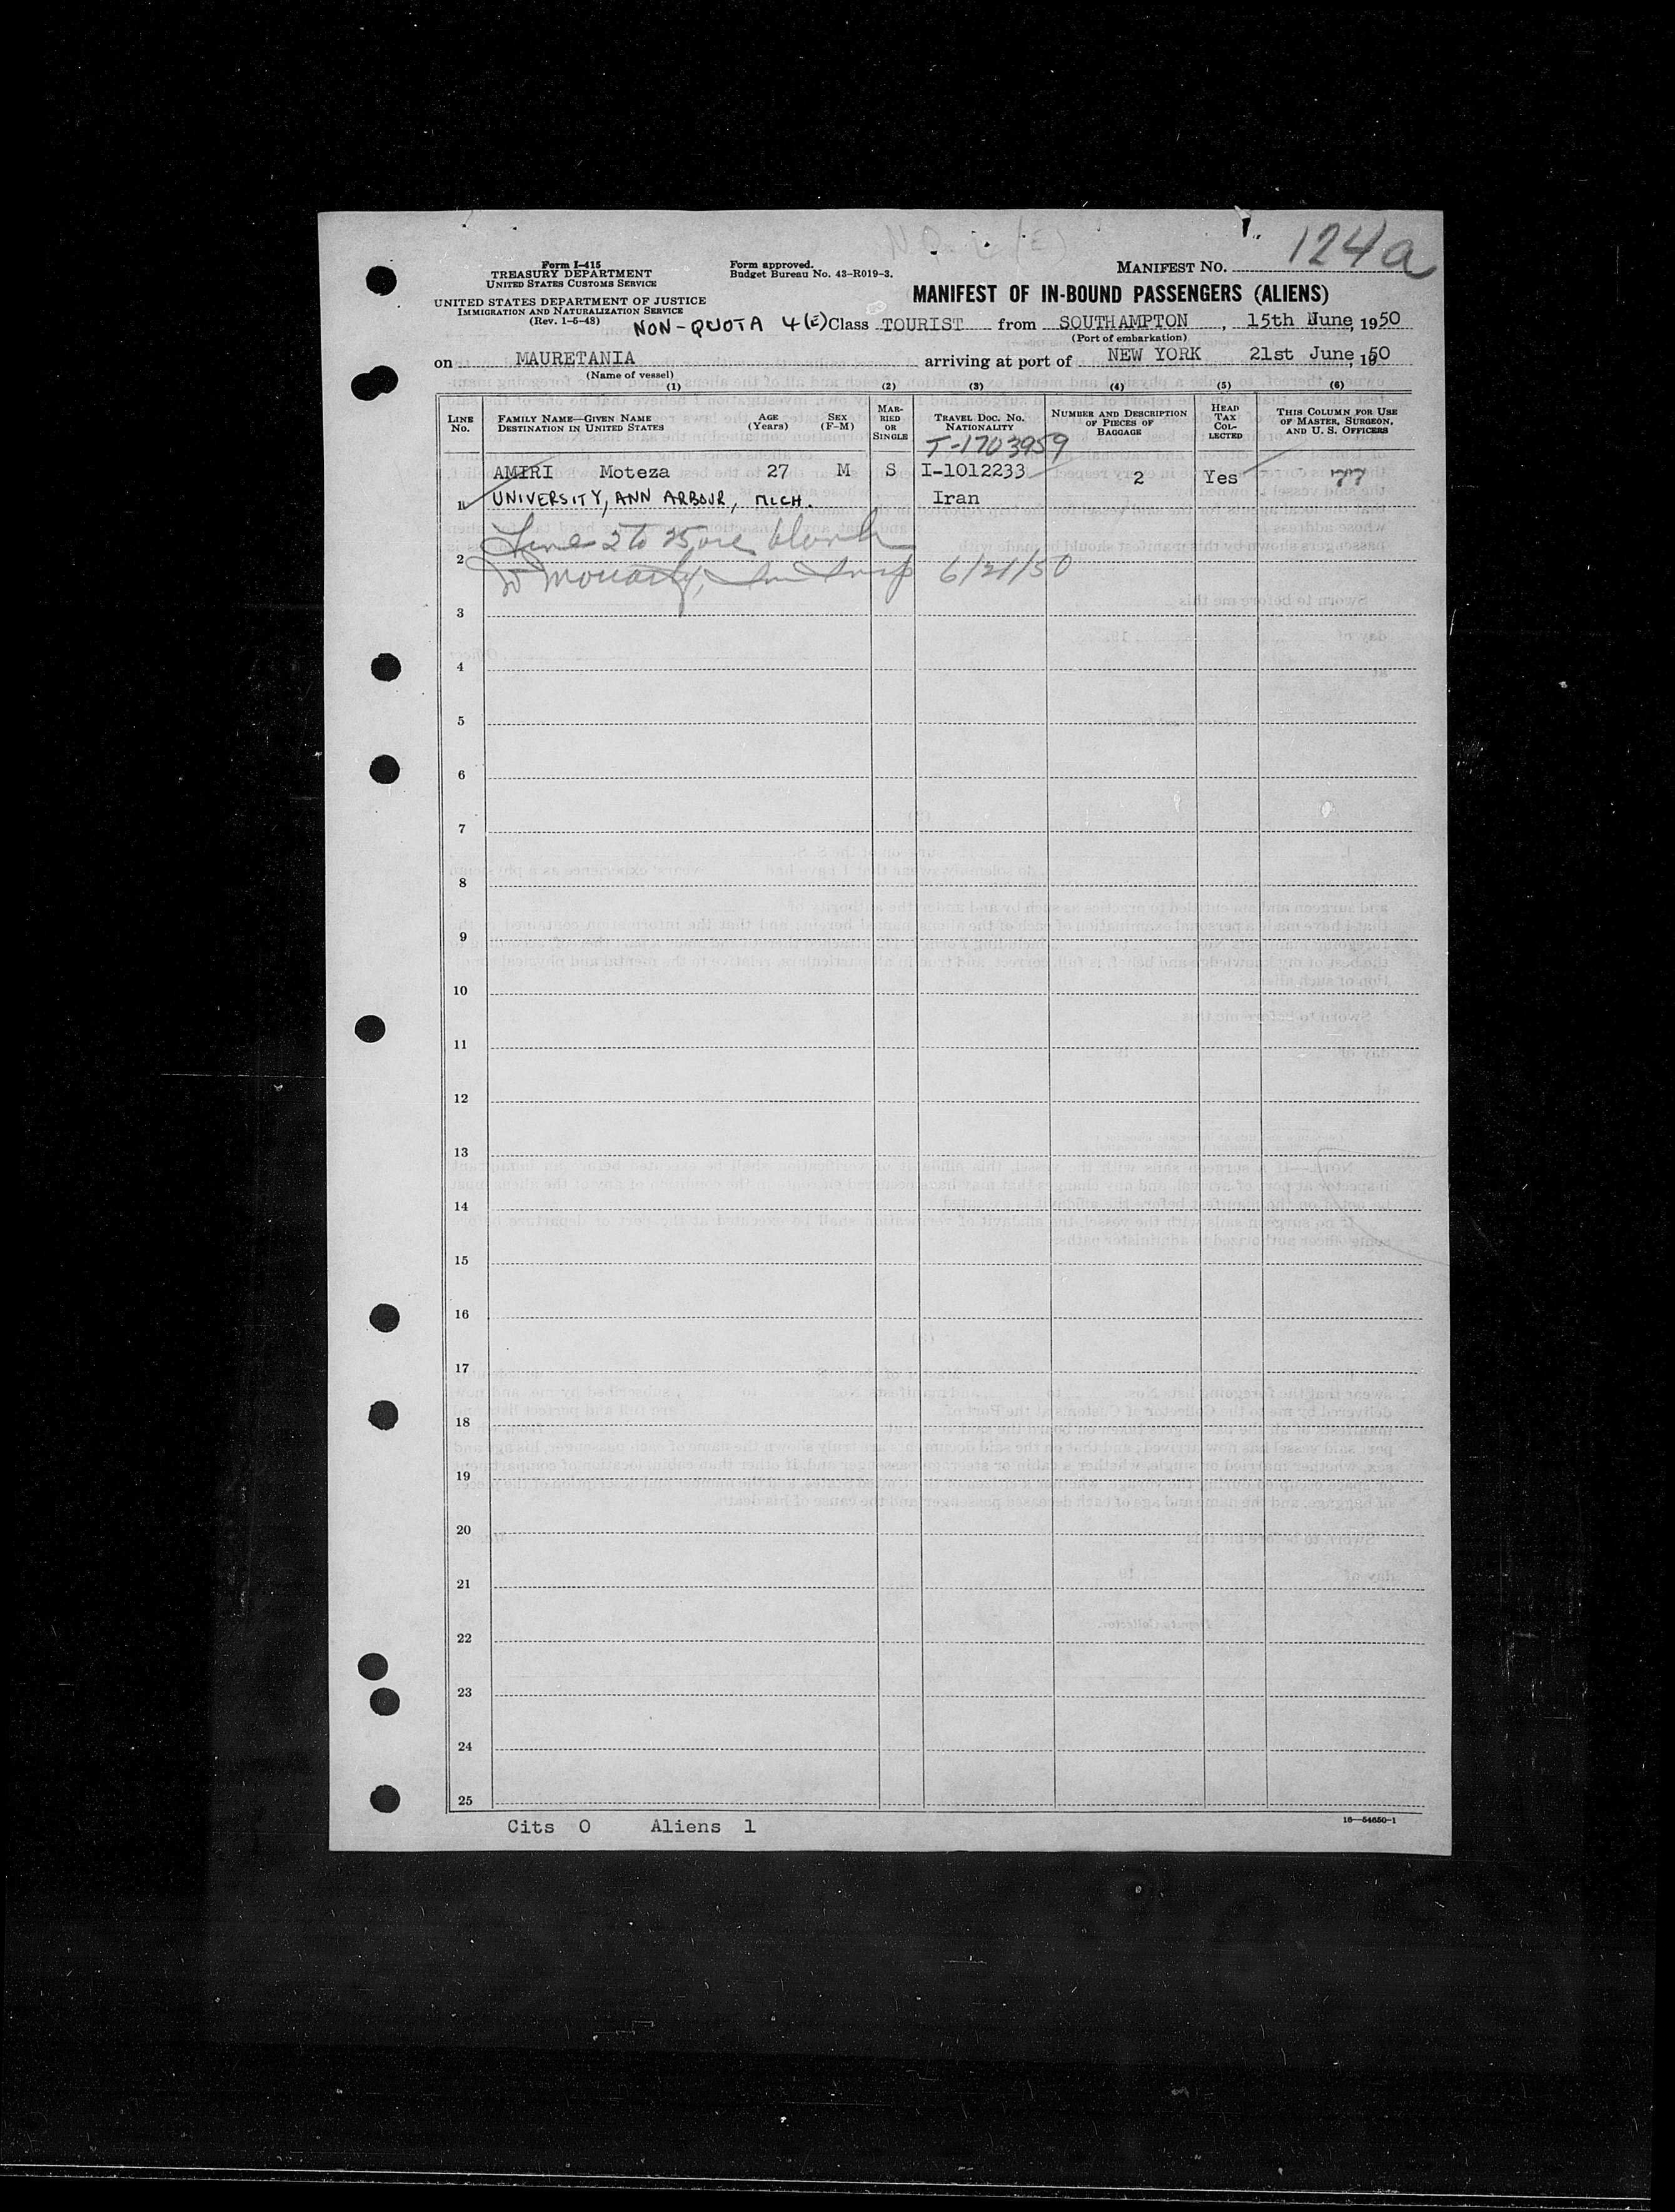 124a
Form I-415
TREASURY DEPARTMENT
UNITED STATES CUSTOMS SERVICE
Form approved.
Budget Bureau No. 43-R019-3.
MANIFEST NO.
UNITED STATES DEPARTMENT OF JUSTICE
IMMIGRATION AND NATURALIZATION SERVICE
(Rev. 1-5-48)
MANIFEST OF IN-BOUND PASSENGERS (ALIENS)
NON-QUOTA 4(E) Class TOURIST from SOUTHAMPTON, 15th June, 1950
(Port of embarkation)
on MAURETANIA arriving at port of NEW YORK 21st June, 1950
(Name of vessel)
(1) (2) (3) (4) (5) (6)
LINE No.
FAMILY NAME—GIVEN NAME
DESTINATION IN UNITED STATES
AGE (Years)
SEX (F-M)
MARRIED OR SINGLE
TRAVEL DOC. NO.
NATIONALITY
NUMBER AND DESCRIPTION OF PIECES OF BAGGAGE
HEAD TAX COLLECTED
THIS COLUMN FOR USE OF MASTER, SURGEON, AND U. S. OFFICERS
T-1703959
AMIRI Moteza 27 M S I-1012233 2 Yes
1 UNIVERSITY, ANN ARBOUR, MICH. Iran
Line 2 to 25 are blank
2
6/21/50
3
4
5
6
7
8
9
10
11
12
13
14
15
16
17
18
19
20
21
22
23
24
25
Cits 0 Aliens 1
16—54650-1